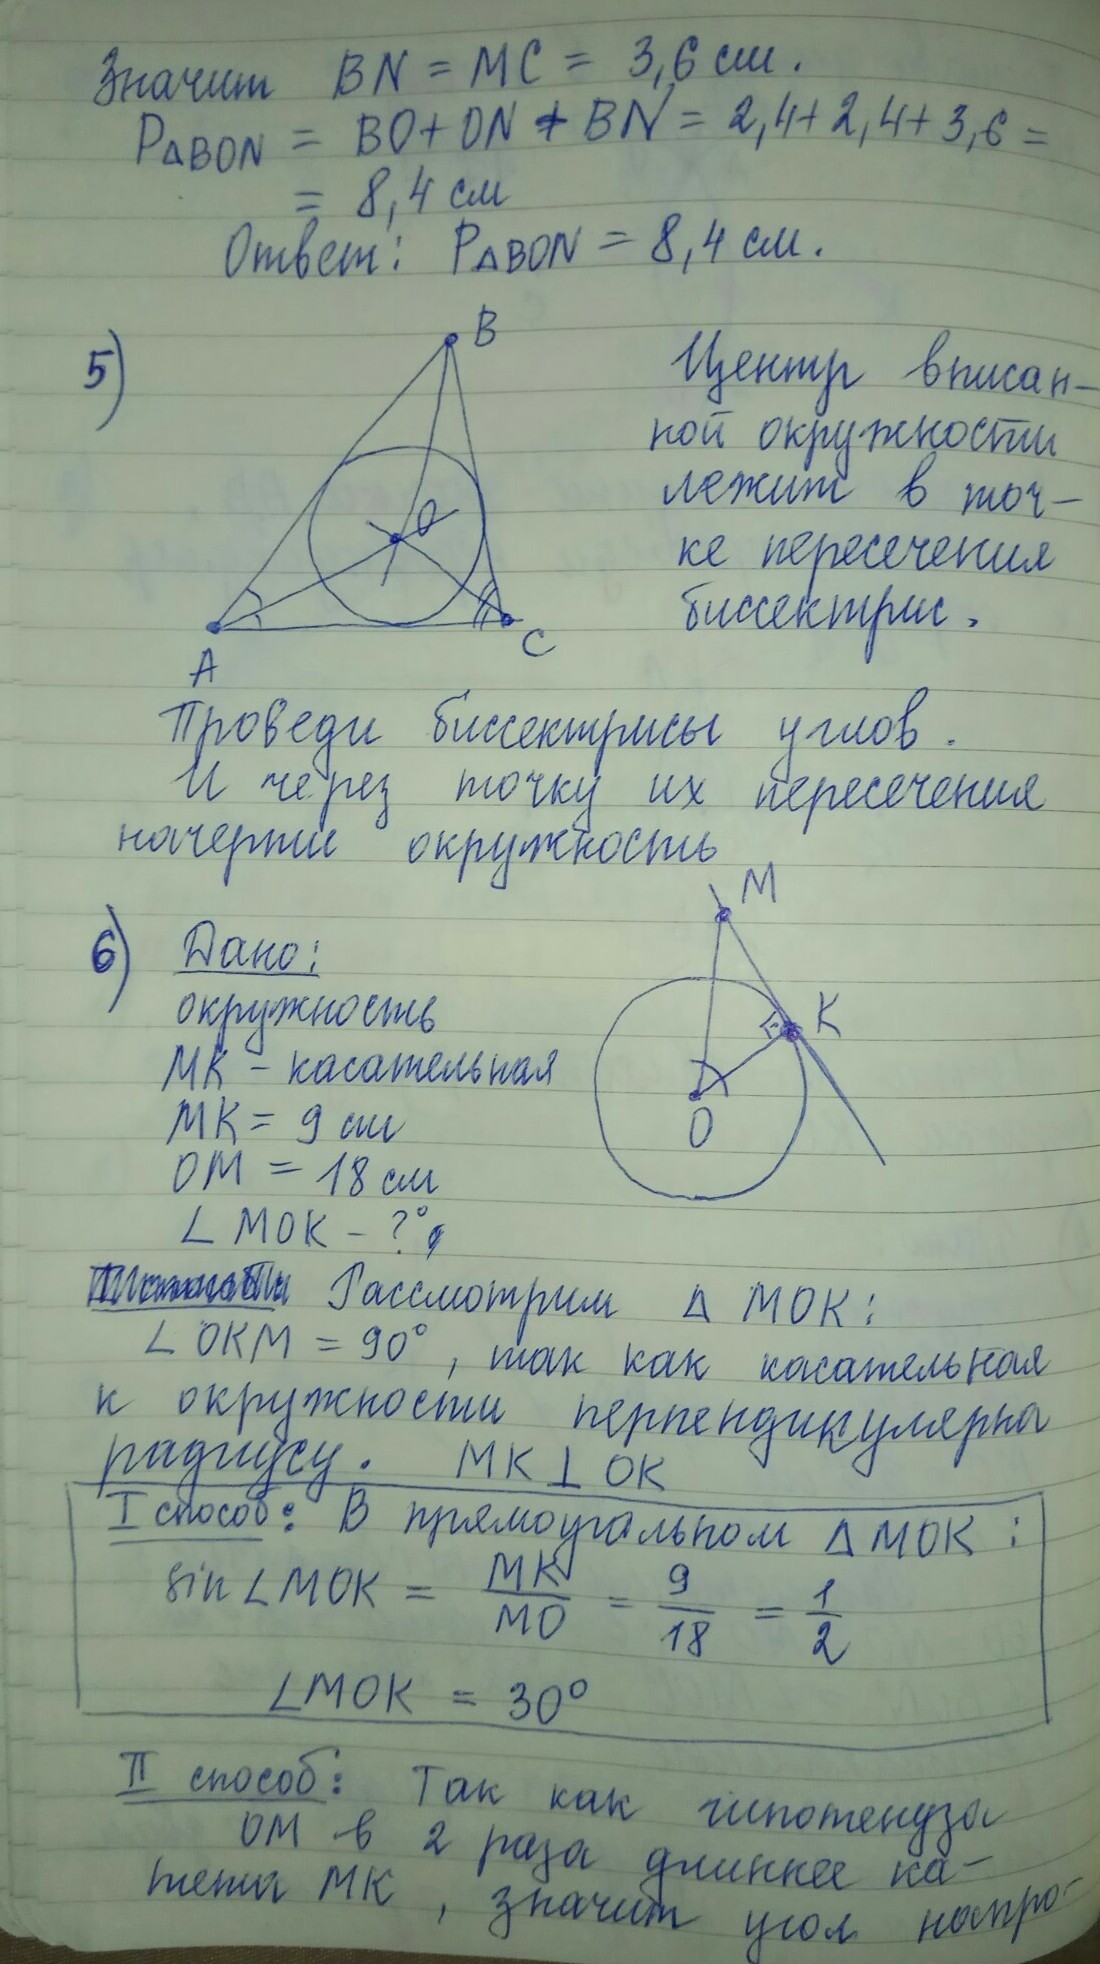 Значит BN = MC = 3,6 см.
P△BON = BO + ON + BN = 2,4 + 2,4 + 3,6 =
= 8,4 см
Ответ: P△BON = 8,4 см.
5)
B
O
A
C
Центр вписан-
ной окружности
лежит в точ-
ке пересечения
биссектрис.
Проведи биссектрисы углов.
И через точку их пересечения
начерти окружность
6) Дано:
окружность
MK - касательная
MK = 9 см
OM = 18 см
∠MOK - ?°
M
K
O
Рассмотрим △ MOK:
∠OKM = 90°, так как касательная
к окружности перпендикулярна
радиусу. MK ⊥ OK
I способ: В прямоугольном △MOK:
sin∠MOK = MK/MO = 9/18 = 1/2
∠MOK = 30°
II способ: Так как гипотенуза
OM в 2 раза длиннее ка-
тета MK, значит угол напро-